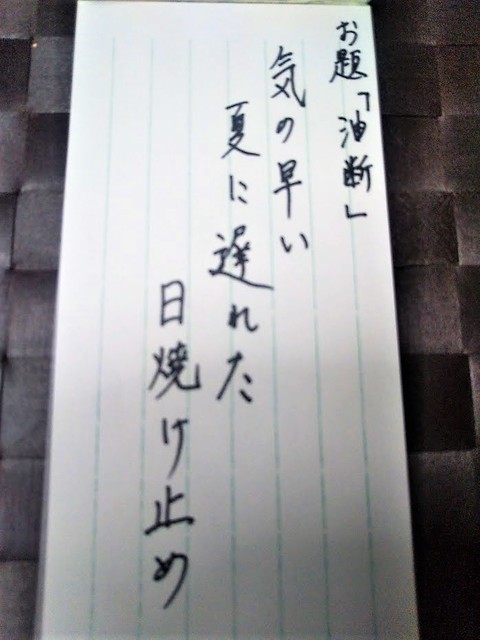 お題「油断」
気の早い
夏に遅れた
日焼け止め